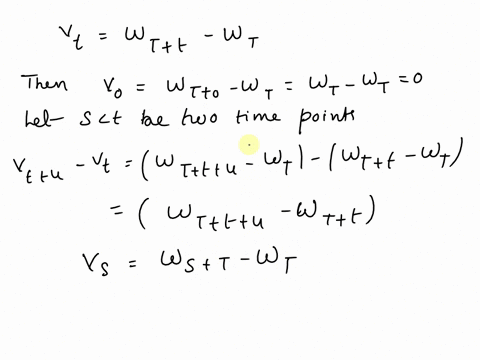 V_t = W_{T+t} - W_T
Then V_0 = W_{T+0} - W_T = W_T - W_T = 0
Let s<t be two time points
V_{t+u} - V_t = (W_{T+t+u} - W_T) - (W_{T+t} - W_T)
= (W_{T+t+u} - W_{T+t})
V_s = W_{s+T} - W_T